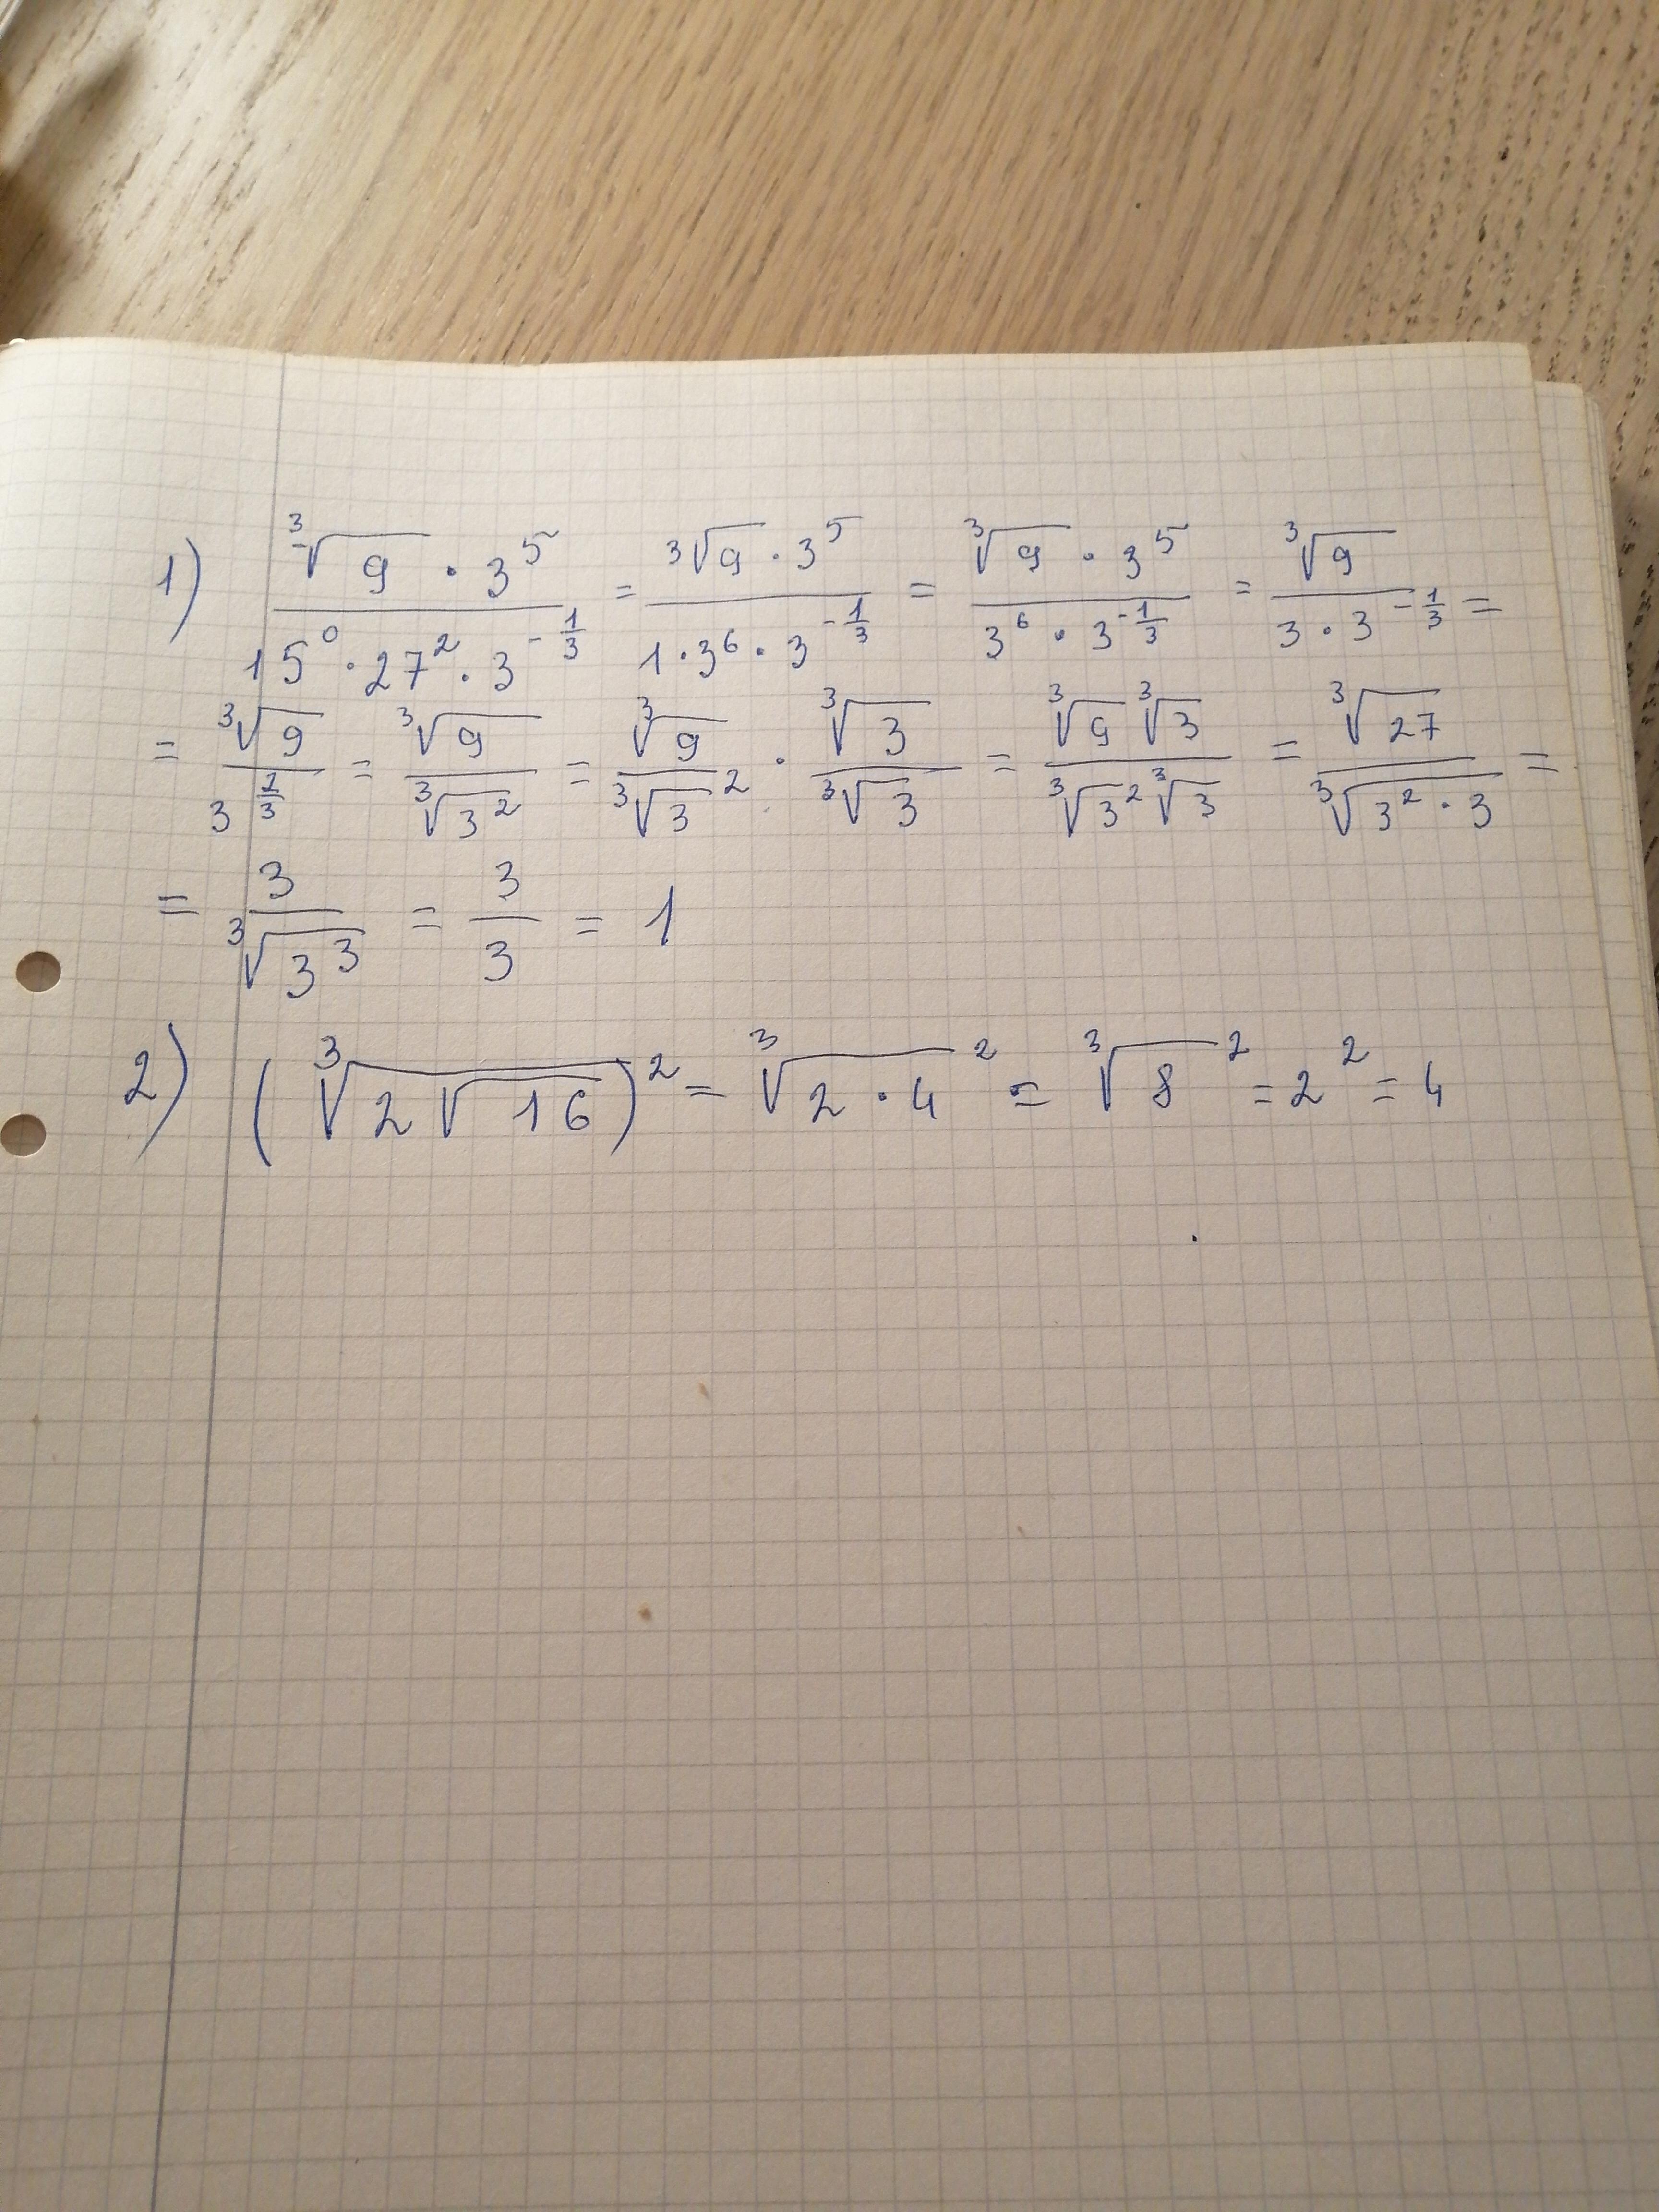 1) \frac{\sqrt[3]{9} \cdot 3^5}{15^0 \cdot 27^2 \cdot 3^{-\frac{1}{3}}} = \frac{\sqrt[3]{9} \cdot 3^5}{1 \cdot 3^6 \cdot 3^{-\frac{1}{3}}} = \frac{\sqrt[3]{9} \cdot 3^5}{3^6 \cdot 3^{-\frac{1}{3}}} = \frac{\sqrt[3]{9}}{3 \cdot 3^{-\frac{1}{3}}} =
= \frac{\sqrt[3]{9}}{3^{\frac{2}{3}}} = \frac{\sqrt[3]{9}}{\sqrt[3]{3^2}} = \frac{\sqrt[3]{9}}{\sqrt[3]{3}^2} \cdot \frac{\sqrt[3]{3}}{\sqrt[3]{3}} = \frac{\sqrt[3]{9} \sqrt[3]{3}}{\sqrt[3]{3}^2 \sqrt[3]{3}} = \frac{\sqrt[3]{27}}{\sqrt[3]{3^2 \cdot 3}} =
= \frac{3}{\sqrt[3]{3^3}} = \frac{3}{3} = 1
2) (\sqrt[3]{2\sqrt{16}})^2 = \sqrt[3]{2 \cdot 4}^2 = \sqrt[3]{8}^2 = 2^2 = 4